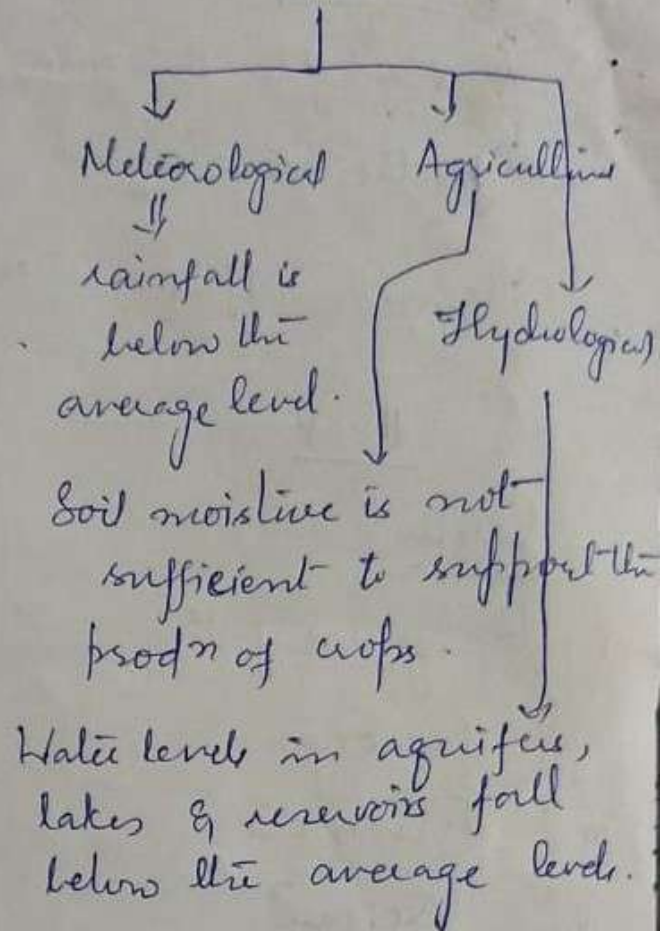 Meteorological Agriculture
rainfall is
below the
average level.
Hydrological
Soil moisture is not
sufficient to support the
prodn of crops.
Water levels in aquifers,
lakes & reservoirs fall
below the average levels.